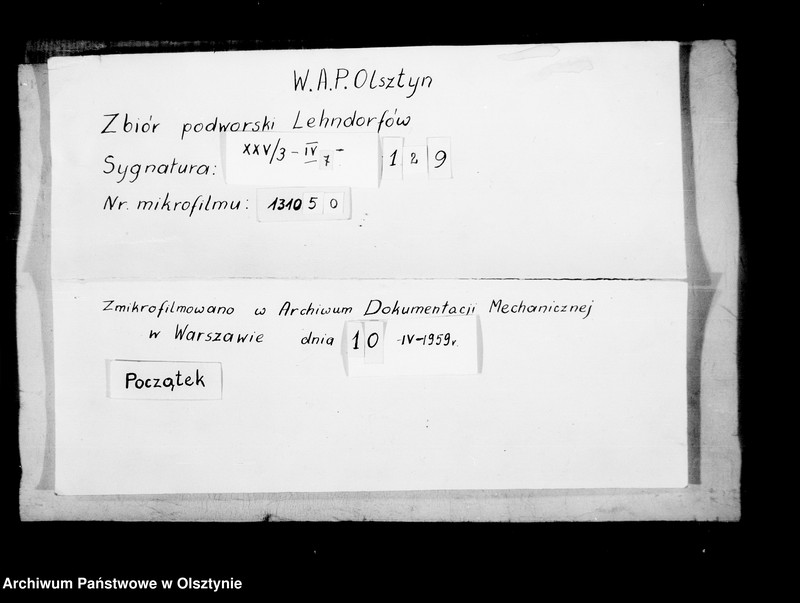 W.A.P. Olsztyn
Zbiór podworski Lehndorfów
Sygnatura: XXV/3 - IV 7 - 129
Nr. mikrofilmu: 131050
Zmikrofilmowano w Archiwum Dokumentacji Mechanicznej
w Warszawie dnia 10 -IV-1959r.
Początek
Archiwum Państwowe w Olsztynie